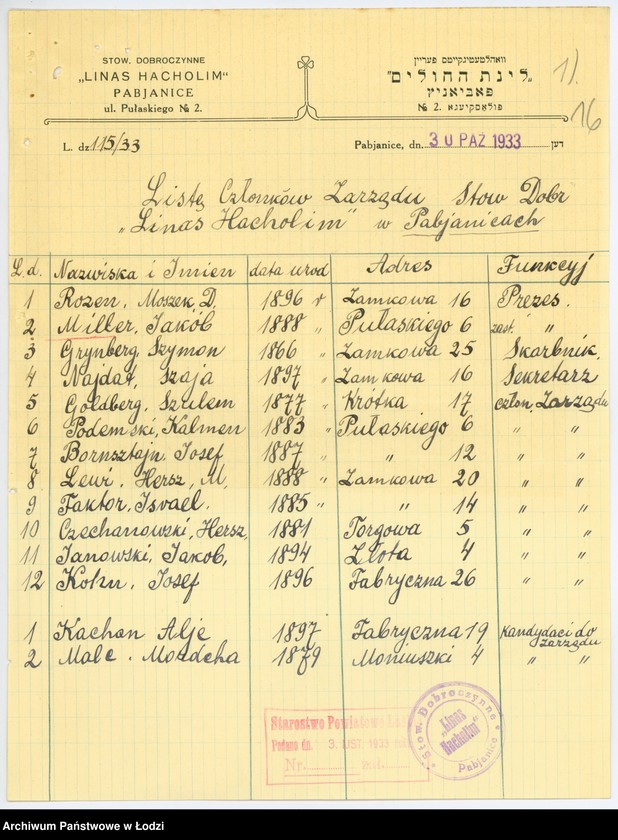 STOW. DOBROCZYNNE
„LINAS HACHOLIM"
PABJANICE
ul. Pułaskiego № 2.
וואהלטעטיגקייטס פעריין
„לינת החולים"
פאביאניץ
פולאסקיעגא № 2.
1).
16
L. dz. 115/33
Pabjanice, dn. 30 PAŹ 1933 דען
Listę Członków Zarządu Stow Dobr
„Linas Hacholim" w Pabjanicach
L.d. Nazwiska i Imien data urod Adres Funkcyj
1 Rozen, Moszek, D, 1896 r Zamkowa 16 Prezes.
2 Miller, Jakób 1888 „ Pułaskiego 6 zast. „
3 Grynberg, Szymon 1866 „ Zamkowa 25 Skarbnik,
4 Najdat, Szaja 1897 „ Zamkowa 16 Sekretarz
5 Goldberg, Szulem 1877 „ Krótka 17 człon, Zarządu
6 Podemski, Kalmen 1883 „ Pułaskiego 6 „ „
7 Bornsztajn, Josef 1887 „ „ 12 „ „
8 Lewi, Hersz, M, 1888 „ Zamkowa 20 „ „
9 Faktor, Israel. 1885 „ „ 14 „ „
10 Czechanowski, Hersz, 1881 Torgowa 5 „ „
11 Janowski, Jakob, 1894 Złota 4 „ „
12 Kohn, Josef 1896 Fabryczna 26 „ „
1 Kachan Alje 1897 Fabryczna 19 kandydaci do zarządu
2 Malc, Mordcha 1879 Moniuszki 4 „ „
Starostwo Powiatowe
Podano dn. 3. LIST. 1933
Nr. zał.
Stow. Dobroczynne
„Linas
Hacholim"
Pabjanice
Archiwum Państwowe w Łodzi